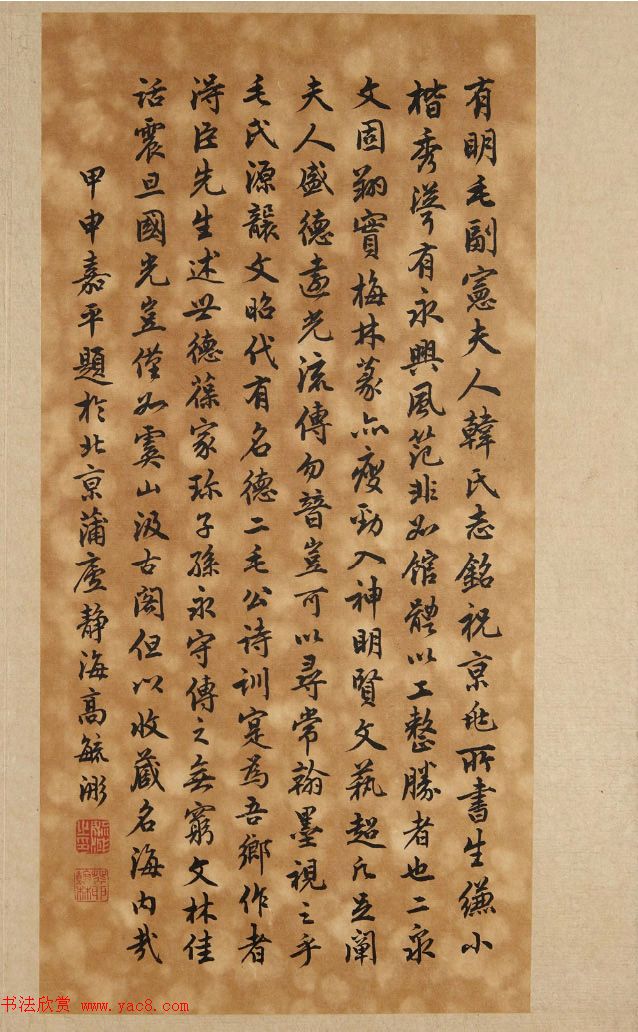 有明毛副憲夫人韓氏志銘祝京兆所書生縑小
楷秀潭有永興風范非如館體以工整勝者也二泉
文固翔實梅林篆亦瘦勁入神明賢文蓺超凡並闡
夫人盛德遺光流傳勿替豈可以尋常翰墨視之乎
毛氏源讓文昭代有名德二毛公詩訓寔為吾鄉作者
淂臣先生述世德葆家珎子孫永守傳之無窮文林佳
話震旦國光豈僅如虞山汲古閣但以收藏名海内哉
甲申嘉平題於北京蒲廬静海高毓浵
书法欣赏 www.yac8.com